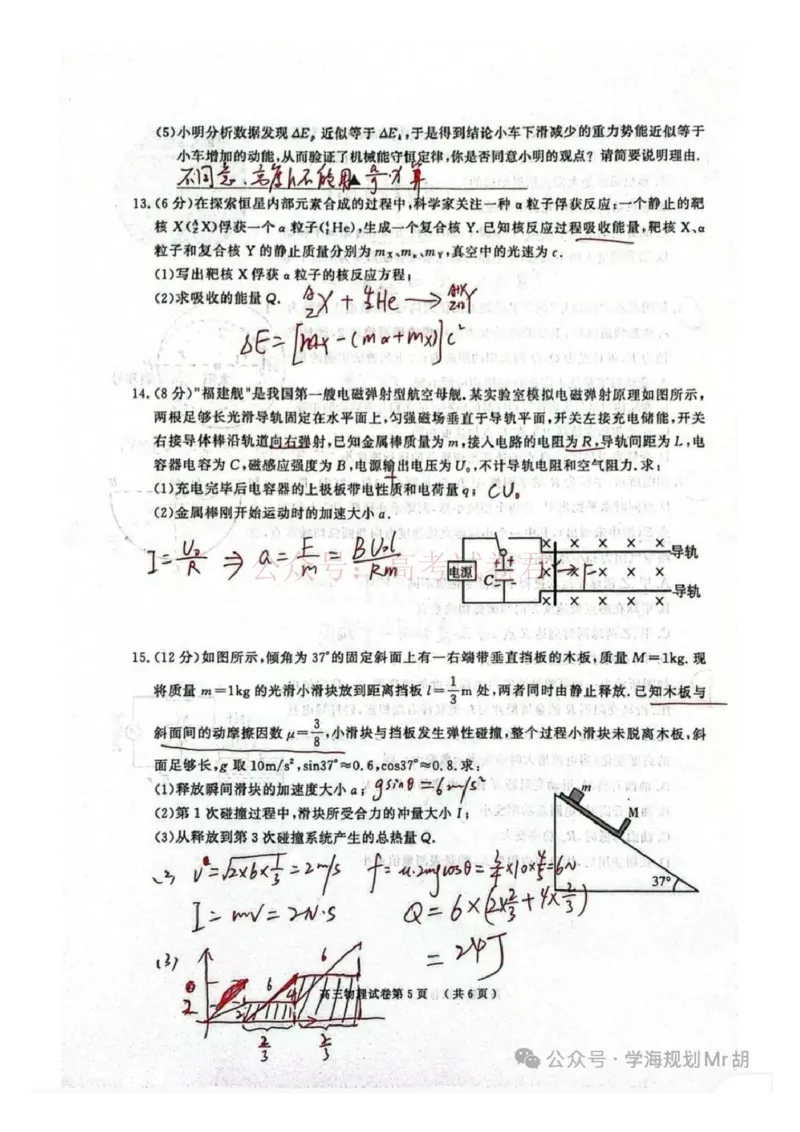 (5)小明分析数据发现 ΔEₚ 近似等于 ΔEₖ,于是得到结论小车下滑减少的重力势能近似等于
小车增加的动能,从而验证了机械能守恒定律,你是否同意小明的观点?请简要说明理由.
不同意、高度h不能用 算
13.(6分)在探索恒星内部元素合成的过程中,科学家关注一种 α 粒子俘获反应:一个静止的靶
核 X(ᴬ_Z X)俘获一个 α 粒子(⁴₂He),生成一个复合核 Y.已知核反应过程吸收能量,靶核 X、α
粒子和复合核 Y 的静止质量分别为 m_X、m_α、m_Y,真空中的光速为 c.
(1)写出靶核 X 俘获 α 粒子的核反应方程;
(2)求吸收的能量 Q.
ᴬ_Z X + ⁴₂He → ᴬ⁺⁴_Z₊₂ Y
ΔE=[ -(mα+mx)]c²
14.(8分)"福建舰"是我国第一艘电磁弹射型航空母舰.某实验室模拟电磁弹射原理如图所示,
两根足够长光滑导轨固定在水平面上,匀强磁场垂直于导轨平面,开关左接充电储能,开关
右接导体棒沿轨道向右弹射,已知金属棒质量为 m,接入电路的电阻为 R,导轨间距为 L,电
容器电容为 C,磁感应强度为 B,电源输出电压为 U₀,不计导轨电阻和空气阻力.求:
(1)充电完毕后电容器的上极板带电性质和电荷量 q; + CU₀
(2)金属棒刚开始运动时的加速大小 a.
I=U₀/R ⇒ a=F/m=BU₀L/Rm
公众号:高考试卷君
电源 C + + − − F 导轨
导轨
15.(12分)如图所示,倾角为 37°的固定斜面上有一右端带垂直挡板的木板,质量 M=1kg.现
将质量 m=1kg 的光滑小滑块放到距离挡板 l=1/3 m 处,两者同时由静止释放.已知木板与
斜面间的动摩擦因数 μ=3/8,小滑块与挡板发生弹性碰撞,整个过程小滑块未脱离木板,斜
面足够长,g 取 10m/s²,sin37°≈0.6,cos37°≈0.8.求:
(1)释放瞬间滑块的加速度大小 a; gsinθ=6m/s²
(2)第 1 次碰撞过程中,滑块所受合力的冲量大小 I;
(3)从释放到第 3 次碰撞系统产生的总热量 Q.
m
M
37°
(2) v=√2×6×1/3=2m/s f=μ.2mgcosθ=3/4×10×4/5=6N
I=mv=2N·S Q=6×(2×2/3+4×2/3)
=24J
(3) 2 6 2 4 6
2/3 2/3
高三物理试卷第 5 页 (共 6 页)
公众号·学海规划Mr胡